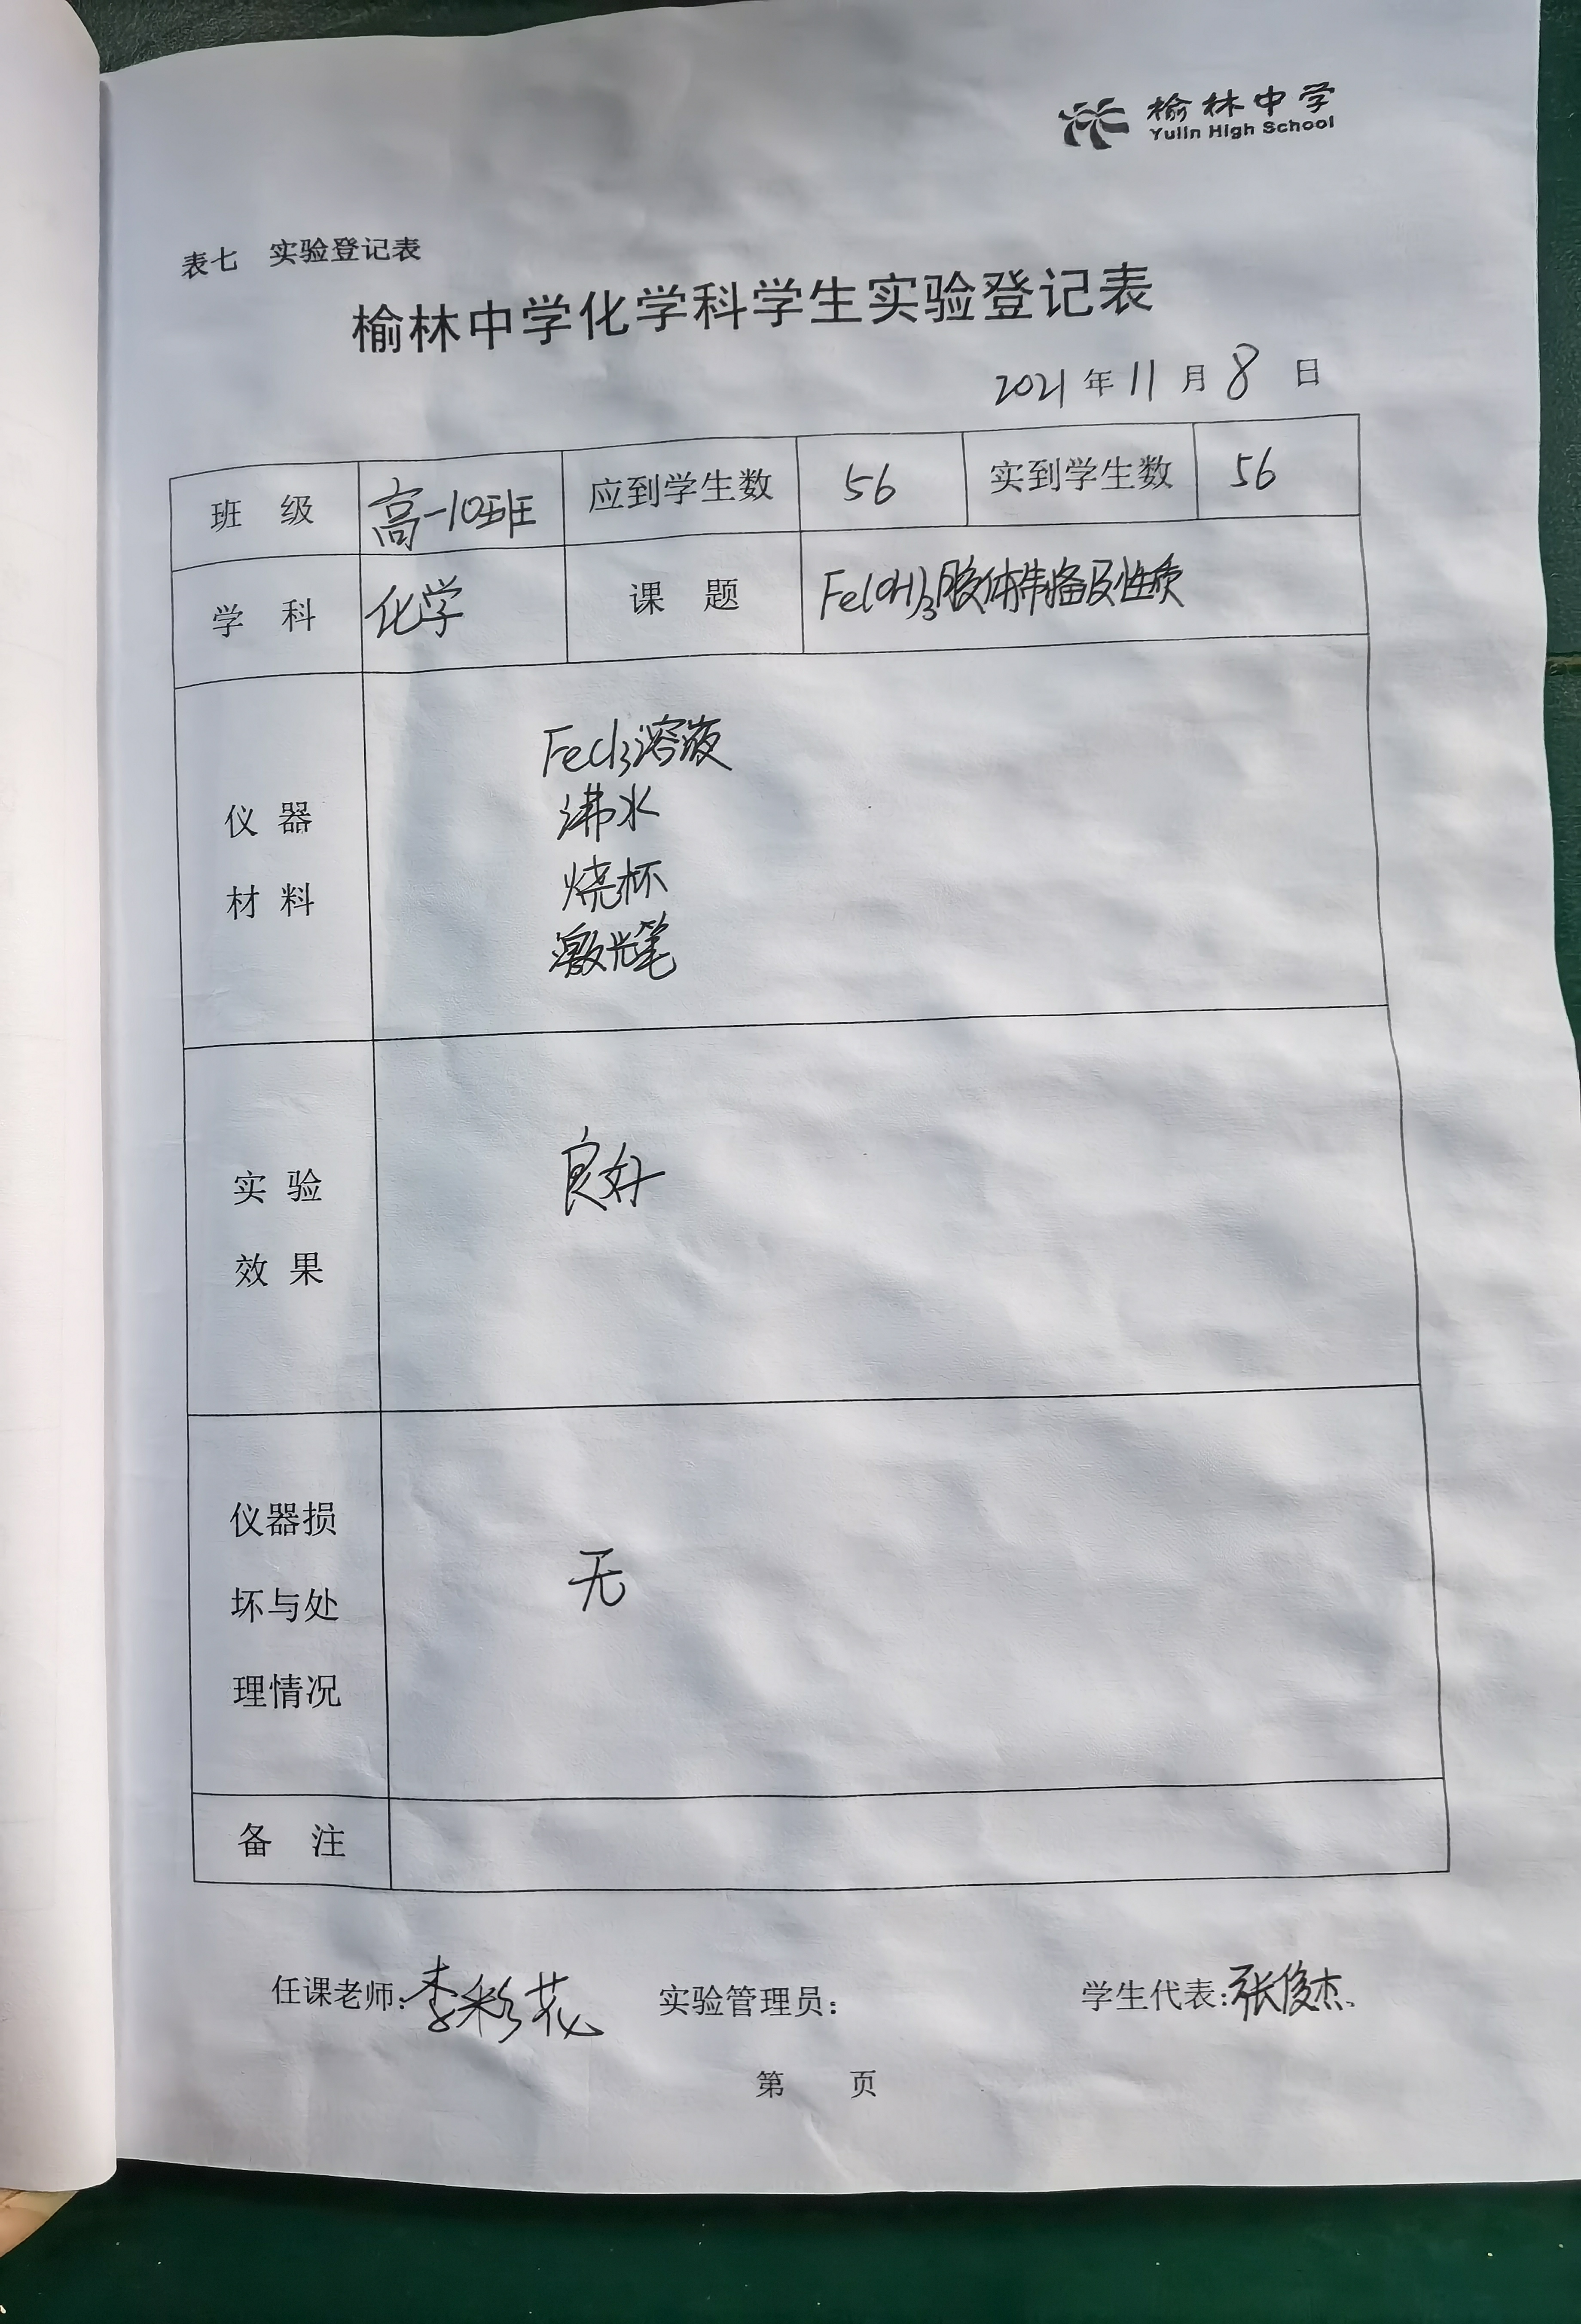 榆林中学
Yulin High School
表七 实验登记表
榆林中学化学科学生实验登记表
2021 年 11 月 8 日
班 级 高一10班 应到学生数 56 实到学生数 56
学 科 化学 课 题 Fe(OH)3胶体制备及性质
仪 器
材 料
FeCl3溶液
沸水
烧杯
激光笔
实 验
效 果
良好
仪器损
坏与处
理情况
无
备 注
任课老师：李彩花 实验管理员： 学生代表：张俊杰.
第 页